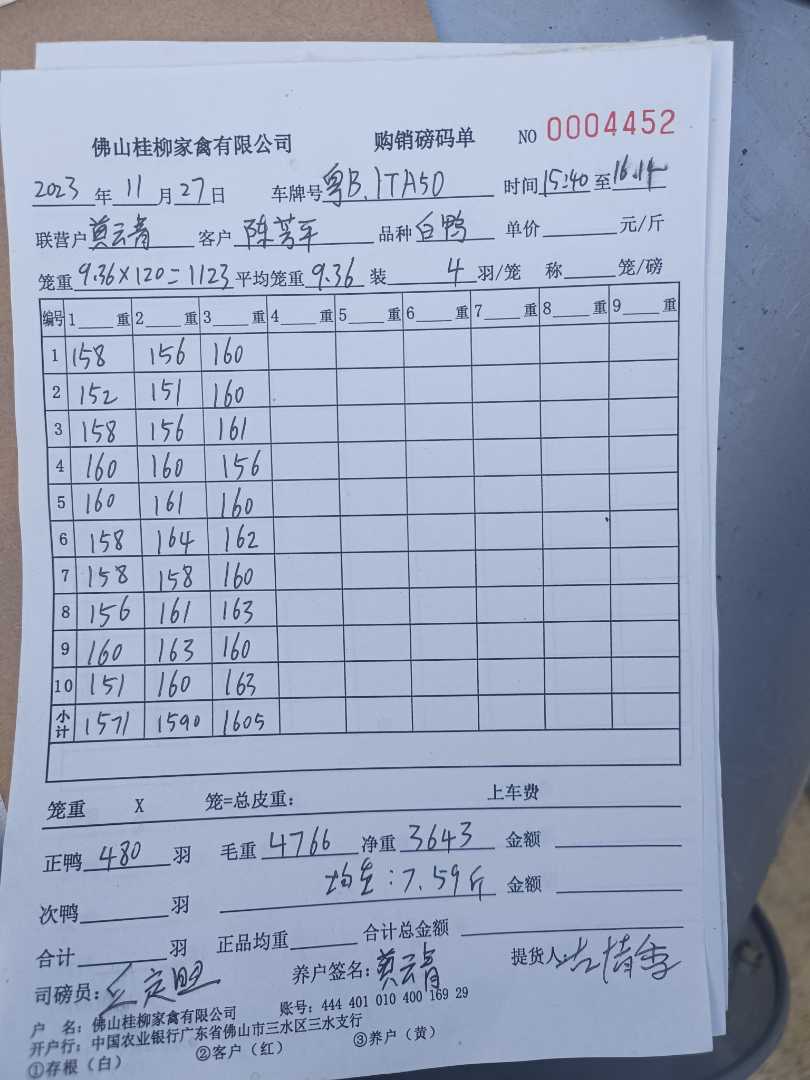 佛山桂柳家禽有限公司 购销磅码单 NO 0004452
2023年11月27日 车牌号粤B.1TA50 时间15:40至16.14
联营户莫云青 客户陈芳平 品种白鸭 单价 元/斤
笼重9.36×120=1123 平均笼重9.36 装 4 羽/笼 称 笼/磅
编号 1 重 2 重 3 重 4 重 5 重 6 重 7 重 8 重 9 重
1 158 156 160
2 152 151 160
3 158 156 161
4 160 160 156
5 160 161 160
6 158 164 162
7 158 158 160
8 156 161 163
9 160 163 160
10 151 160 163
小计 1571 1590 1605
笼重 X 笼=总皮重: 上车费
正鸭 480 羽 毛重 4766 净重 3643 金额
次鸭 羽 均重:7.59斤 金额
合计 羽 正品均重 合计总金额
司磅员: 养户签名:莫云青 提货人
户 名: 佛山桂柳家禽有限公司 账号: 444 401 010 400 169 29
开户行: 中国农业银行广东省佛山市三水区三水支行
①存根(白) ②客户(红) ③养户(黄)